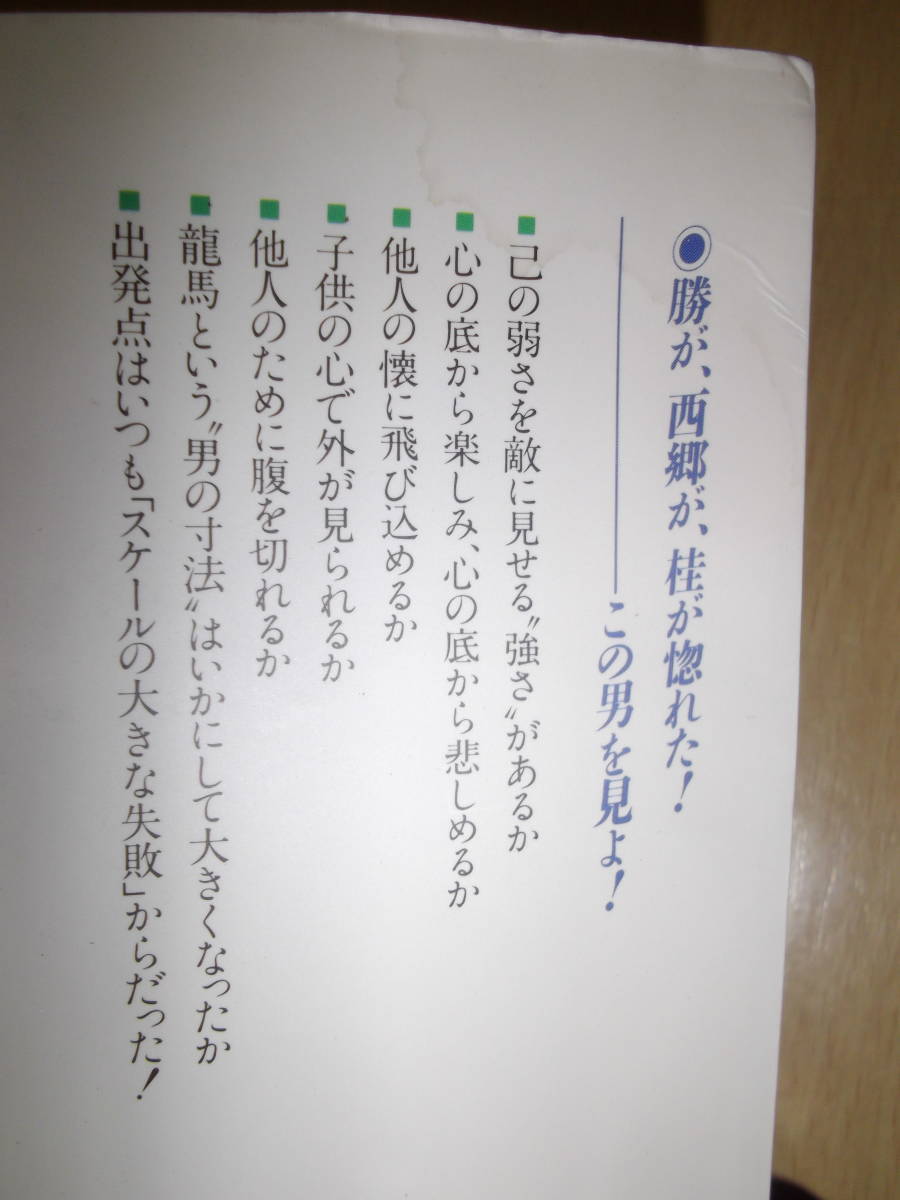 ◉勝が、西郷が、桂が惚れた！
――この男を見よ！
■己の弱さを敵に見せる〝強さ〟があるか
■心の底から楽しみ、心の底から悲しめるか
■他人の懐に飛び込めるか
■子供の心で外が見られるか
■他人のために腹を切れるか
■龍馬という〝男の寸法〟はいかにして大きくなったか
■出発点はいつも「スケールの大きな失敗」からだった！